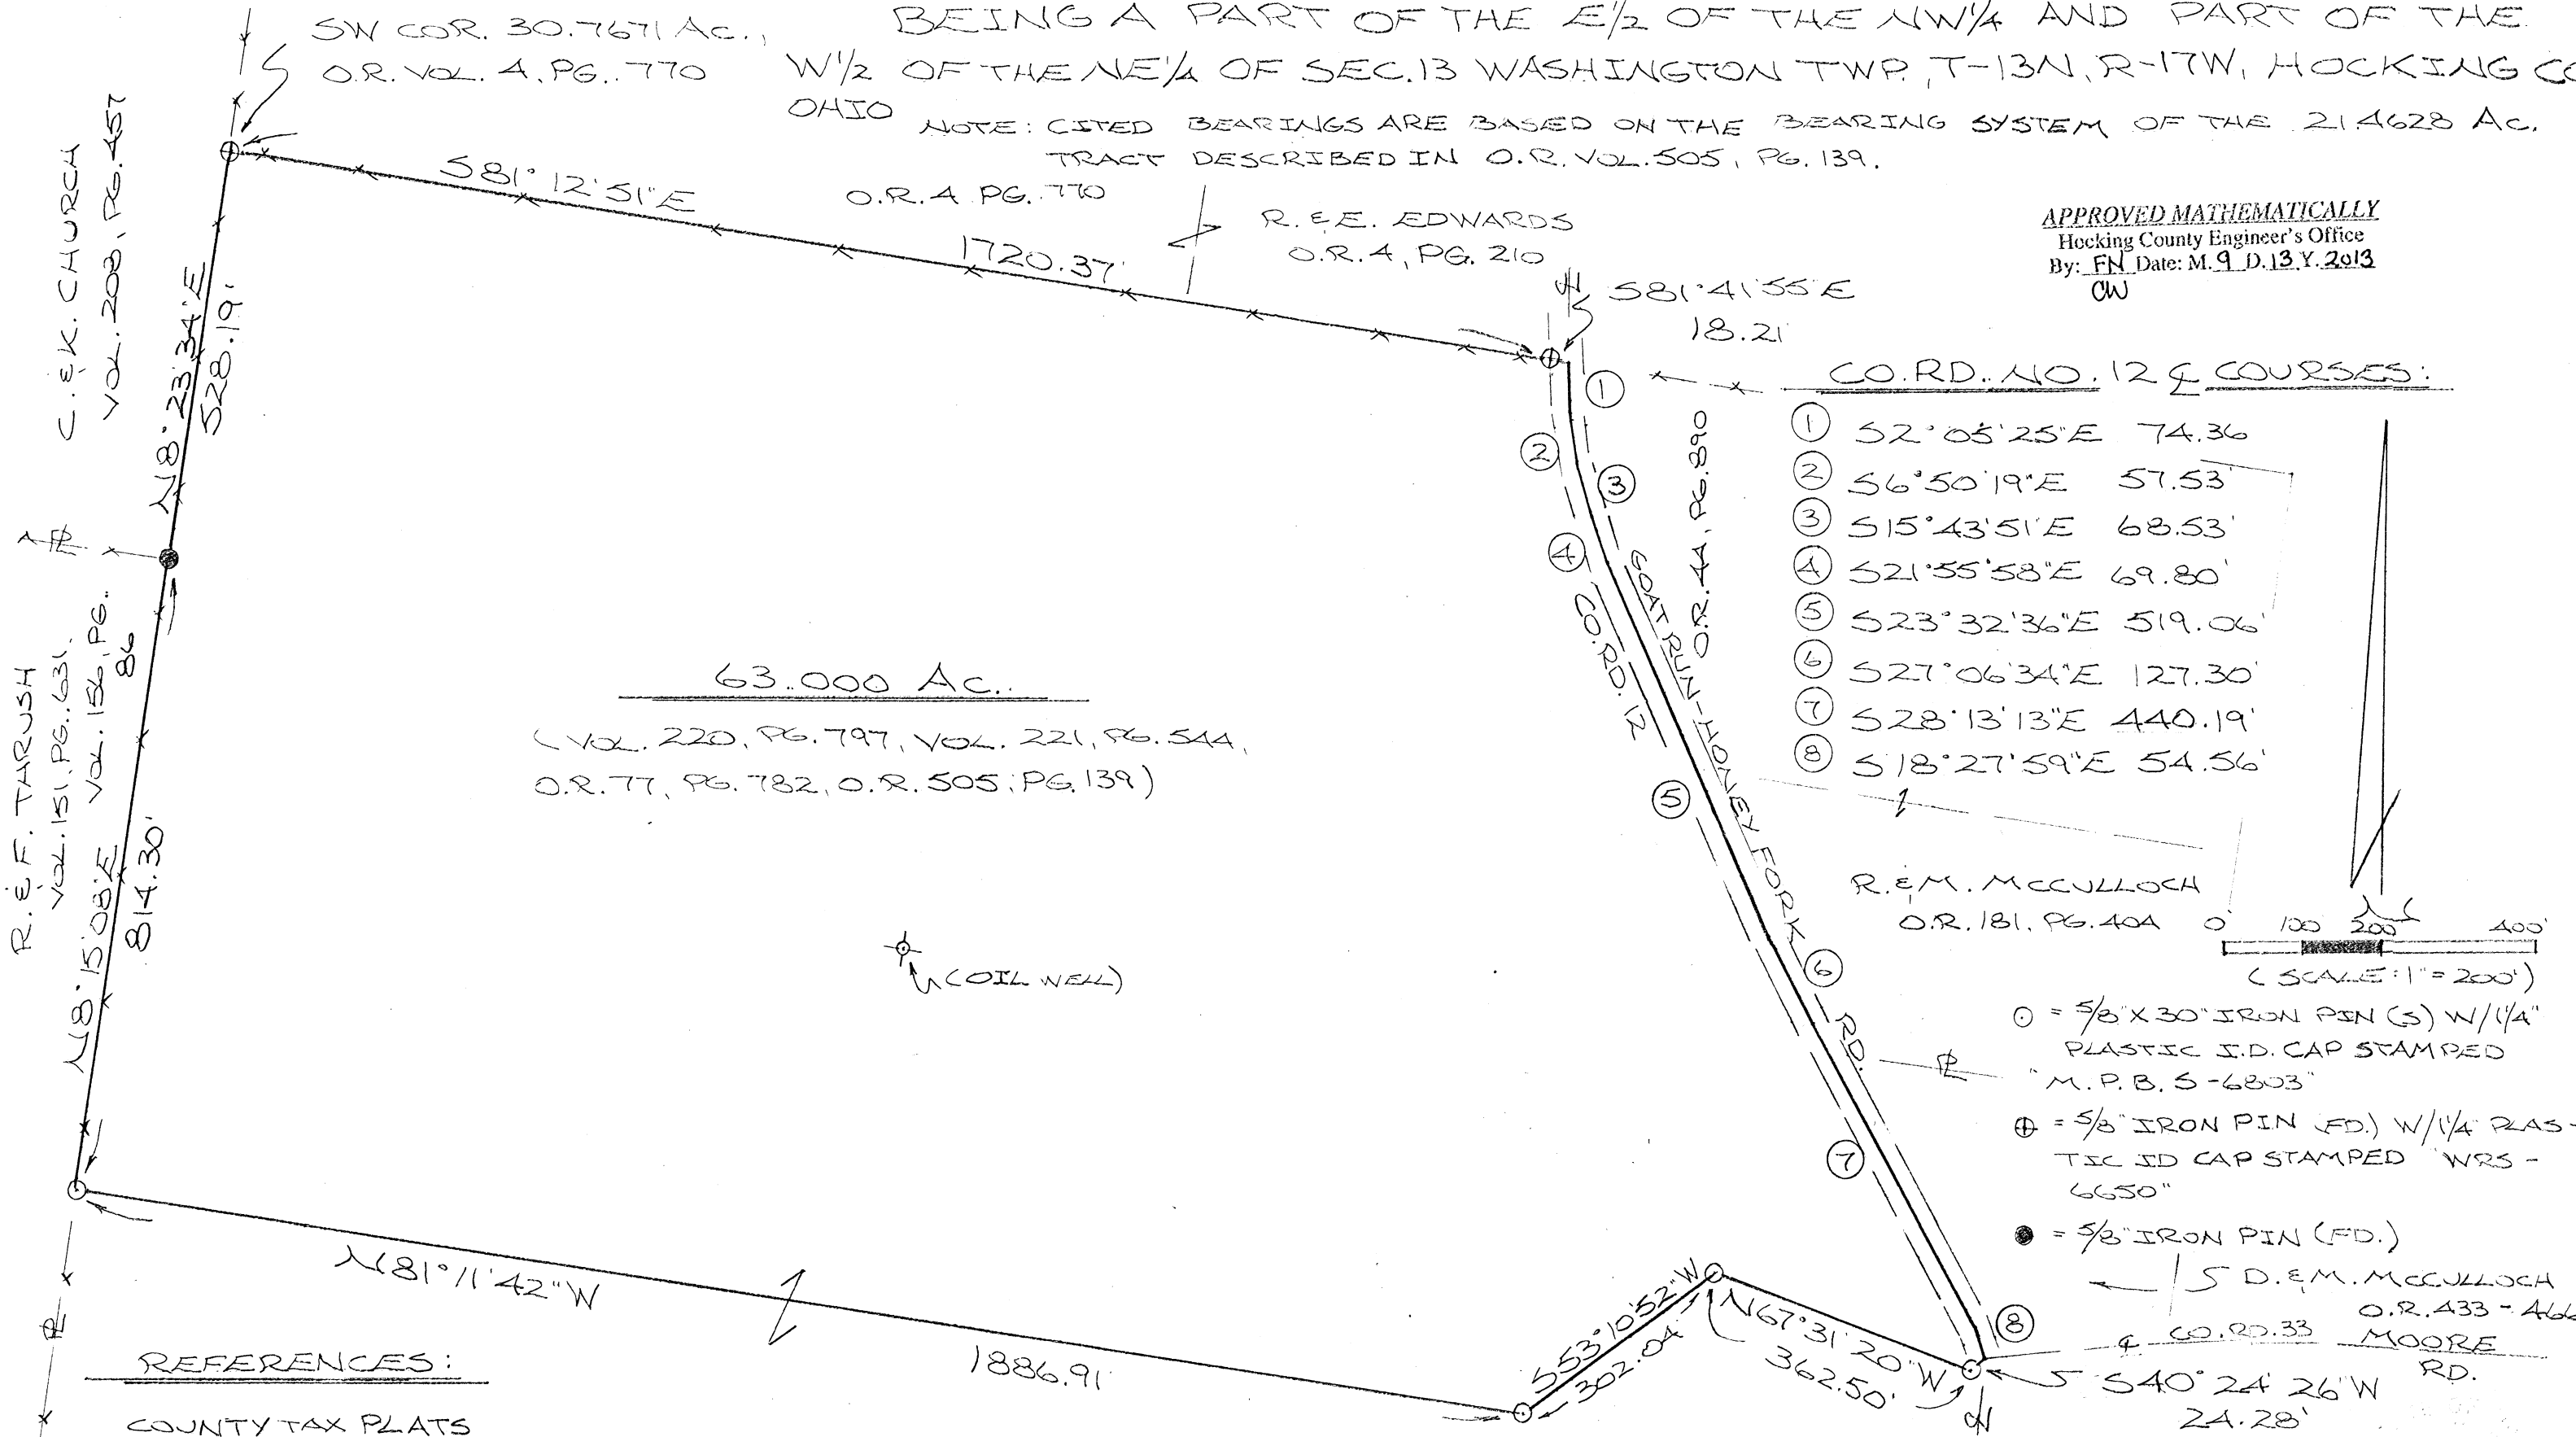 SW COR. 30.7671 AC.,
O.R. VOL. 4, PG. 770
BEING A PART OF THE E1/2 OF THE NW1/4 AND PART OF THE
W1/2 OF THE NE1/4 OF SEC.13 WASHINGTON TWP., T-13N, R-17W, HOCKING CO
OHIO
NOTE: CITED BEARINGS ARE BASED ON THE BEARING SYSTEM OF THE 21.4628 AC.
TRACT DESCRIBED IN O.R. VOL. 505, PG. 139.
C. & K. CHURCH
VOL. 203, PG. 457
S81°12'51"E
1720.37'
O.R. 4 PG. 770
R. & E. EDWARDS
O.R. 4, PG. 210
APPROVED MATHEMATICALLY
Hocking County Engineer's Office
By: FN Date: M. 9 D. 13 Y. 2013
CW
S81°41'55"E
18.21'
N8°23'34"E
528.19'
CO. RD. NO. 12 ℄ COURSES:
① S2°05'25"E 74.36
② S6°50'19"E 57.53'
③ S15°43'51"E 68.53'
④ S21°55'58"E 69.80'
⑤ S23°32'36"E 519.06'
⑥ S27°06'34"E 127.30'
⑦ S28°13'13"E 440.19'
⑧ S18°27'59"E 54.56'
①
②
③
④
⑤
⑥
⑦
⑧
O.R. 44, PG. 890
GOAT RUN-HONEY FORK RD.
CO. RD. 12
PL
R. & F. TARUSH
VOL. 151, PG. 631,
VOL. 156, PG.
86
N8°15'08"E
814.30'
63.000 AC.
(VOL. 220, PG. 797, VOL. 221, PG. 544,
O.R. 77, PG. 782, O.R. 505, PG. 139)
(OIL WELL)
R. & M. MCCULLOCH
O.R. 181, PG. 404
0' 100 200' 400'
(SCALE: 1"=200')
⊙ = 5/8" X 30" IRON PIN (S) W/1 1/4"
PLASTIC I.D. CAP STAMPED
"M.P.B. S-6803"
⊕ = 5/8" IRON PIN (FD.) W/1 1/4" PLAS-
TIC ID CAP STAMPED "WRS-
6650"
● = 5/8" IRON PIN (FD.)
PL
D. & M. MCCULLOCH
O.R. 433 - 466
℄ CO. RD. 33 MOORE
RD.
S40°24'26"W
24.28'
N67°31'20"W
362.50'
S53°10'52"W
302.04'
N81°11'42"W
1886.91'
PL
REFERENCES:
COUNTY TAX PLATS